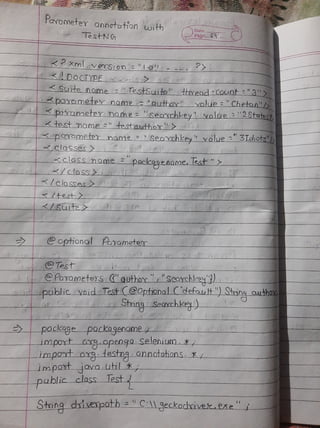 Parameter annotation with
TestNG
<? xml version = "1.0" ---- ?>
< ! DOCTYPE >
< suite name = "TestSuite" thread-count = "3">
< parameter name = "author" value = "Chetan"/>
< parameter name = "searchkey" value = "2States"/>
< test name = "testauthor">
< parameter name = "searchkey" value = "3Idiots"/>
< classes>
< class name = "packagename.Test" >
</class>
</classes>
</test>
</suite>
⇒ @optional Parameter
@Test
@Parameters ({"author", "searchkey"})
public void Test (@Optional ("default") String author
String searchkey)
⇒ package packagename;
import org.openqa.selenium.*,
import org.testng.annotations.*,
import java.util.*,
public class Test {
String driverpath = "C:\\geckodriver.exe" ;